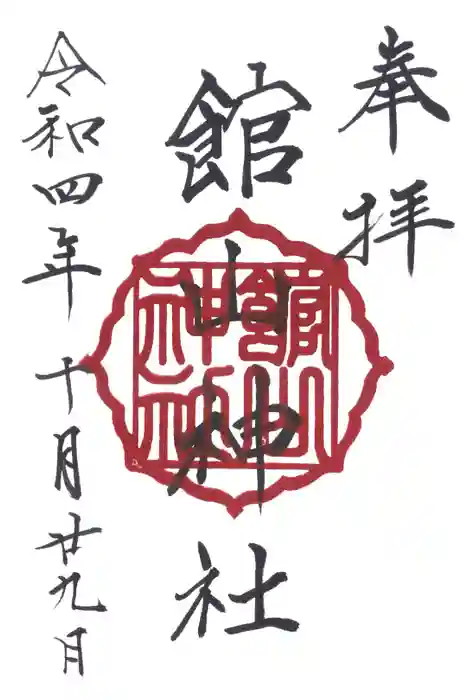 奉拝
館山神社
令和四年十月廿九日
館山
神社